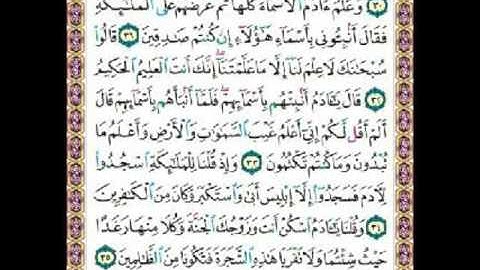 ٣٠ وَعَلَّمَ ءَادَمَ الْأَسْمَاءَ كُلَّهَا ثُمَّ عَرَضَهُمْ عَلَى الْمَلَٰٓئِكَةِ
فَقَالَ أَنۢبِـُٔونِى بِأَسْمَآءِ هَٰٓؤُلَآءِ إِن كُنتُمْ صَٰدِقِينَ ٣١ قَالُوا۟
سُبْحَٰنَكَ لَا عِلْمَ لَنَآ إِلَّا مَا عَلَّمْتَنَآ إِنَّكَ أَنتَ الْعَلِيمُ الْحَكِيمُ
٣٢ قَالَ يَٰٓـَٔادَمُ أَنۢبِئْهُم بِأَسْمَآئِهِمْ فَلَمَّآ أَنۢبَأَهُم بِأَسْمَآئِهِمْ قَالَ
أَلَمْ أَقُل لَّكُمْ إِنِّىٓ أَعْلَمُ غَيْبَ السَّمَٰوَٰتِ وَالْأَرْضِ وَأَعْلَمُ مَا
تُبْدُونَ وَمَا كُنتُمْ تَكْتُمُونَ ٣٣ وَإِذْ قُلْنَا لِلْمَلَٰٓئِكَةِ اسْجُدُوا۟
لِـَٔادَمَ فَسَجَدُوٓا۟ إِلَّآ إِبْلِيسَ أَبَىٰ وَاسْتَكْبَرَ وَكَانَ مِنَ الْكَٰفِرِينَ
٣٤ وَقُلْنَا يَٰٓـَٔادَمُ اسْكُنْ أَنتَ وَزَوْجُكَ الْجَنَّةَ وَكُلَا مِنْهَا رَغَدًا
حَيْثُ شِئْتُمَا وَلَا تَقْرَبَا هَٰذِهِ الشَّجَرَةَ فَتَكُونَا مِنَ الظَّٰلِمِينَ ٣٥